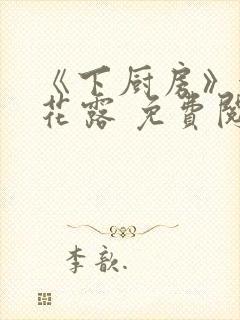 《下厨房》
花露 免費閱
李歆.